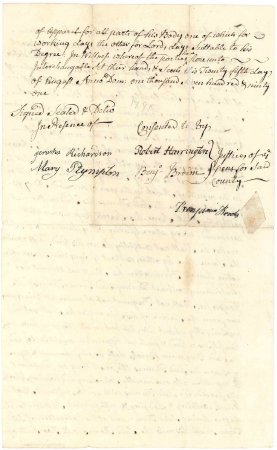 of Apparel for all parts of his Body one of which for
working days the other for Lords days Suitable to his
Degree In Witness whereof the parties
Interchangably Set their hands & Seals this Twenty fifth day
of August Anno Dom: one thousand Seven hundred & ninty
one
Signed Sealed & Delivd
In Presence of
Consented to By
Richardson
Robert Harrington
Justices of ye
Mary Plympton
Benjn Brown
peace for Said
County